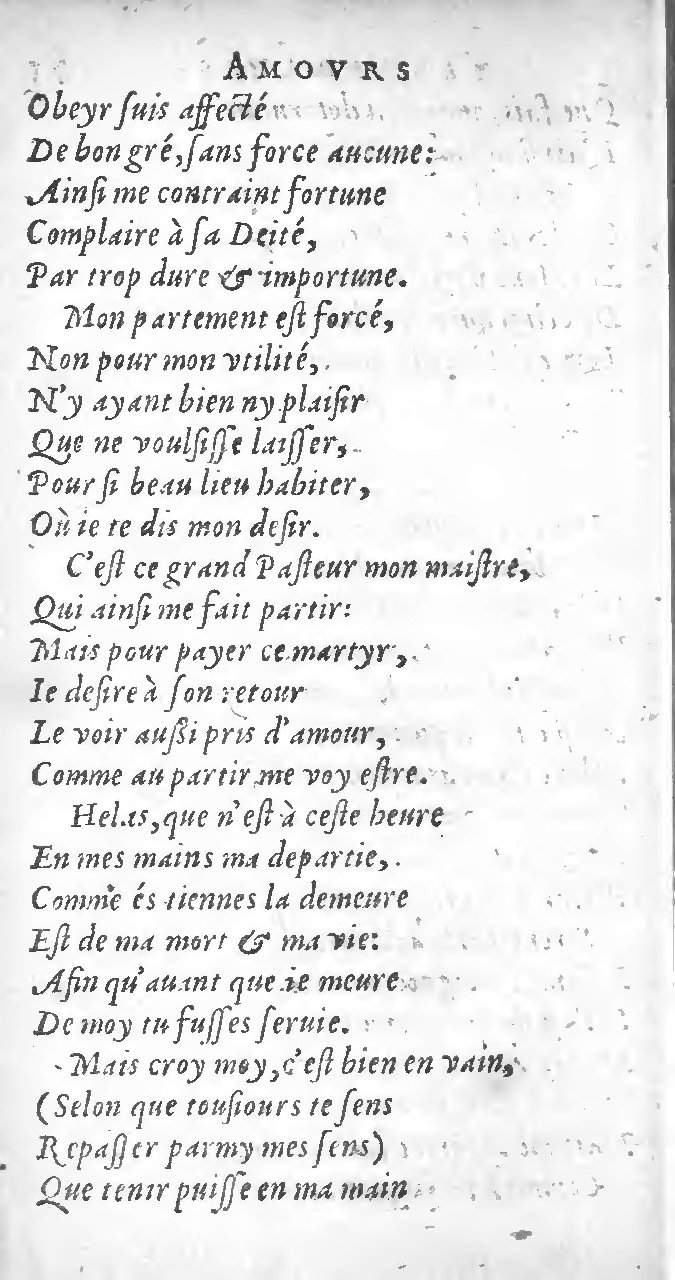 AMOVRS
Obeyr ſuis affecté
De bon gré, ſans force aucune:
Ainſi me contraint fortune
Complaire à ſa Deité,
Par trop dure & importune.
Mon partement eſt forcé,
Non pour mon vtilité,
N'y ayant bien ny plaiſir
Que ne voulſiſſe laiſſer,
Pour ſi beau lieu habiter,
Où ie te dis mon deſir.
C'eſt ce grand Paſteur mon maiſtre,
Qui ainſi me fait partir:
Mais pour payer ce martyr,
Ie deſire à ſon retour
Le voir auſſi pris d'amour,
Comme au partir me voy eſtre.
Helas, que n'eſt à ceſte heure
En mes mains ma departie,
Comme és tiennes la demeure
Eſt de ma mort & ma vie:
Afin qu'auant que ie meure
De moy tu fuſſes ſeruie.
Mais croy moy, c'eſt bien en vain,
(Selon que touſiours te ſens
Repaſſer parmy mes ſens)
Que tenir puiſſe en ma main